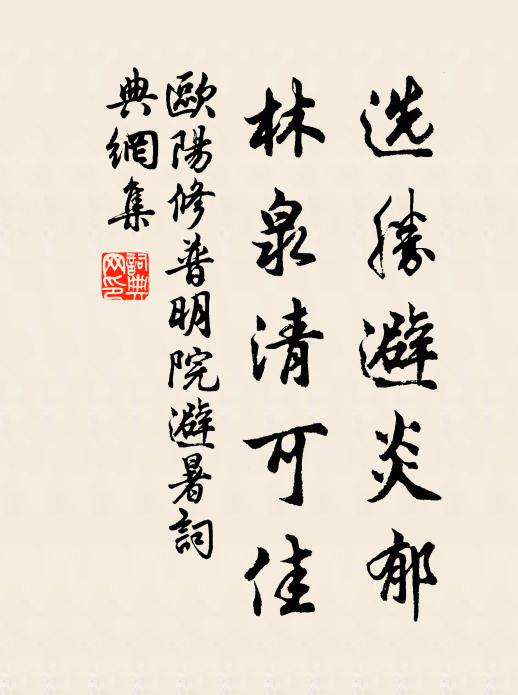 选勝避炎郁
林泉清可佳
歐陽修普明院避暑詞
典網集
詞典
网印